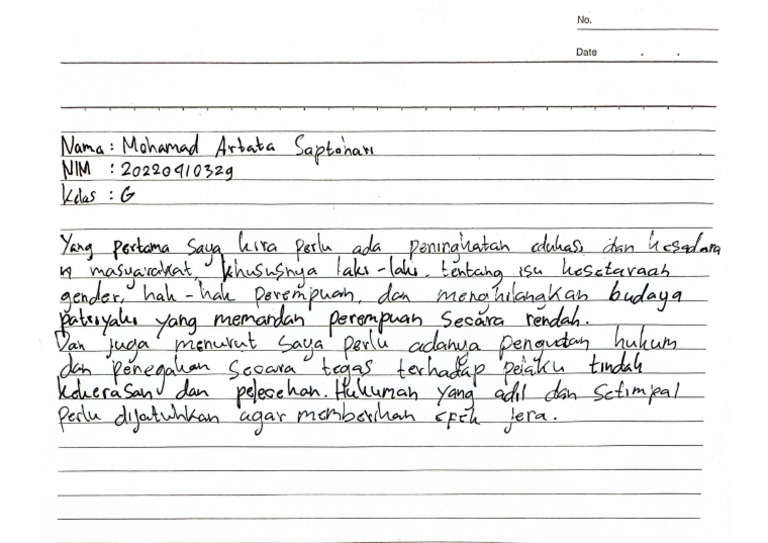 No.
Date . .
Nama : Mohamad Artata Saptohari
NIM : 20220910329
Kelas : G
Yang pertama saya kira perlu ada peningkatan edukasi dan kesadara
n masyarakat, khususnya laki-laki tentang isu kesetaraan
gender, hak-hak perempuan, dan menghilangkan budaya
patriyaki yang memandan perempuan secara rendah.
Dan juga menurut saya perlu adanya penguatan hukum
dan penegakan secara tegas terhadap pelaku tindak
kekerasan dan pelecehan. Hukuman yang adil dan setimpal
perlu dijatuhkan agar memberikan efek jera.